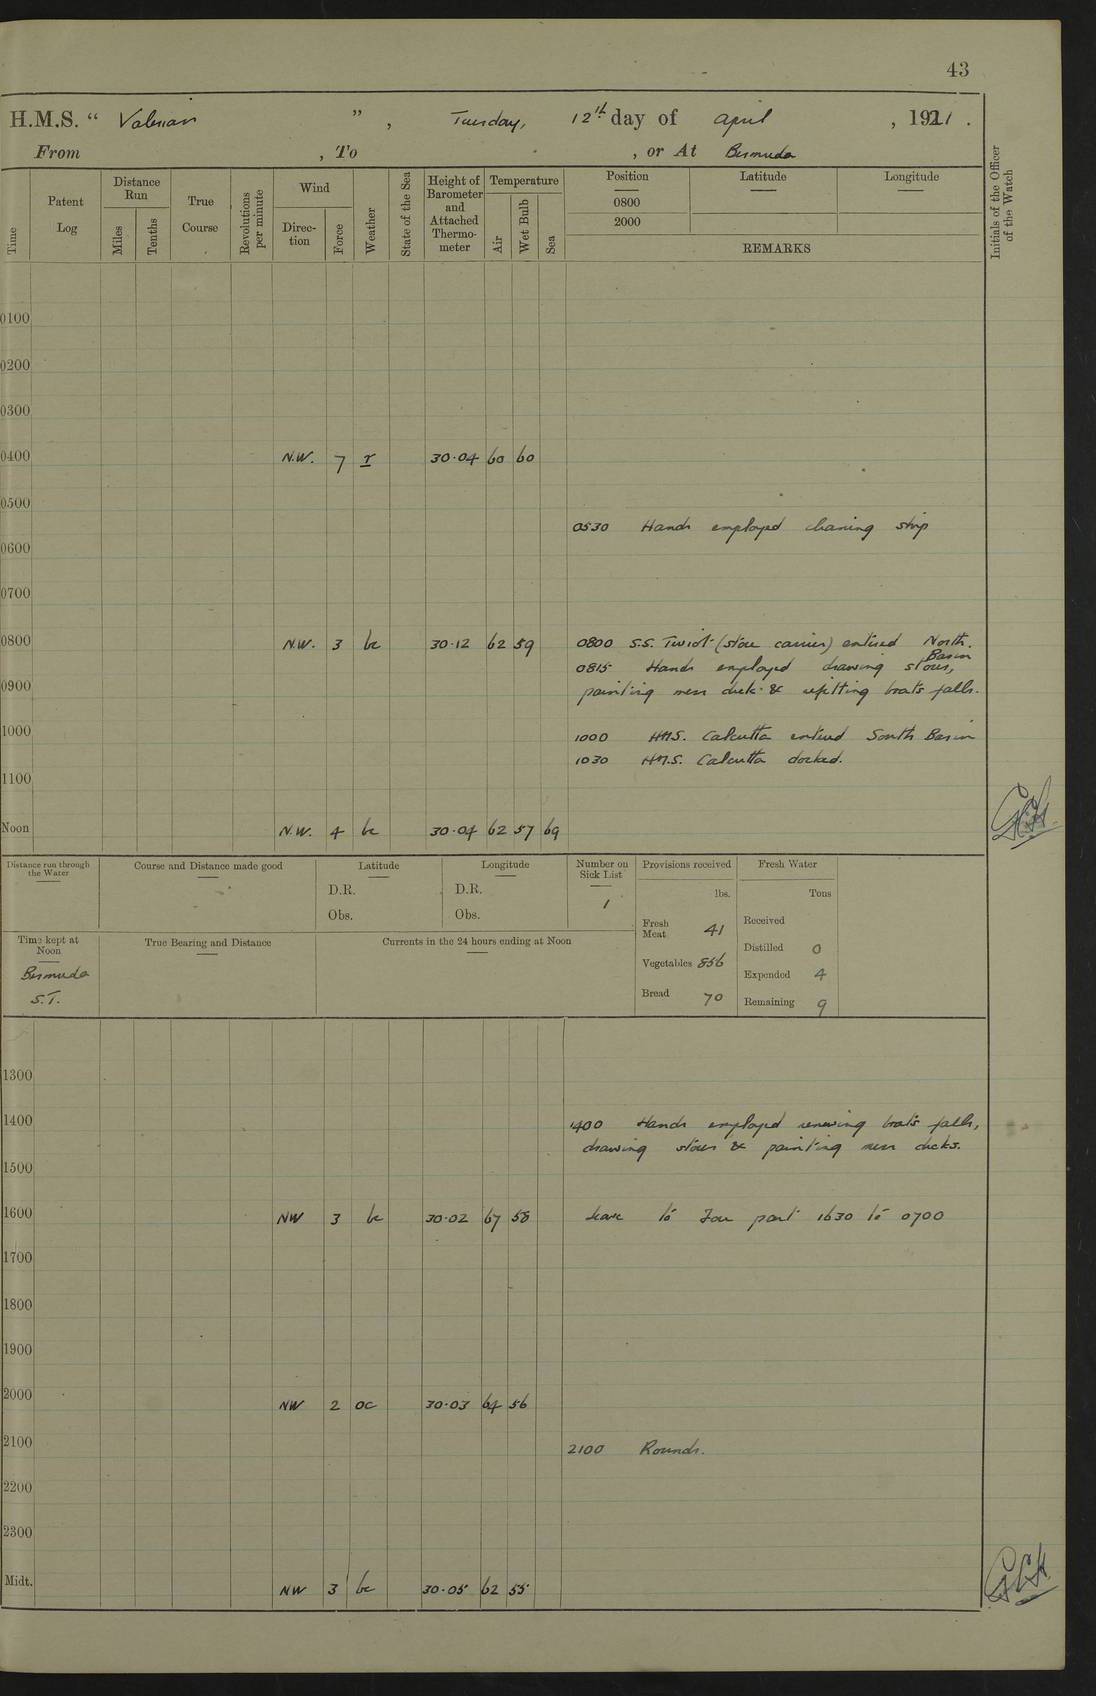 43
H.M.S. “ Valerian ” , Tuesday, 12th day of April , 1921 .
From , To , or At Bermuda
Time
Patent Log
Distance Run
Miles
Tenths
True Course
Revolutions per minute
Wind
Direction
Force
Weather
State of the Sea
Height of Barometer and Attached Thermometer
Temperature
Air
Wet Bulb
Sea
Position
0800
2000
Latitude
Longitude
REMARKS
Initials of the Officer of the Watch
0100
0200
0300
0400 N.W. 7 r 30·04 60 60
0500
0530 Hands employed cleaning ship
0600
0700
0800 N.W. 3 bc 30·12 62 59 0800 S.S. Twiot (store carrier) entered North. Basin
0815 Hands employed drawing stores,
0900 painting mess deck & refitting boats falls.
1000 1000 HMS. Calcutta entered South Basin
1030 H.M.S. Calcutta docked.
1100
Noon N.W. 4 bc 30·04 62 57 69
Distance run through the Water
Course and Distance made good
Latitude
D.R.
Obs.
Longitude
D.R.
Obs.
Number on Sick List
1
Provisions received
lbs.
Fresh Meat 41
Vegetables 856
Bread 70
Fresh Water
Tons
Received
Distilled 0
Expended 4
Remaining 9
Time kept at Noon
Bermuda
S.T.
True Bearing and Distance
Currents in the 24 hours ending at Noon
1300
1400 1400 Hands employed renewing boats falls,
drawing stores & painting mess decks.
1500
1600 NW 3 bc 30·02 67 58 Leave to Four part 1630 to 0700
1700
1800
1900
2000 NW 2 oc 30·03 64 56
2100 2100 Rounds.
2200
2300
Midt. NW 3 bc 30·05 62 55